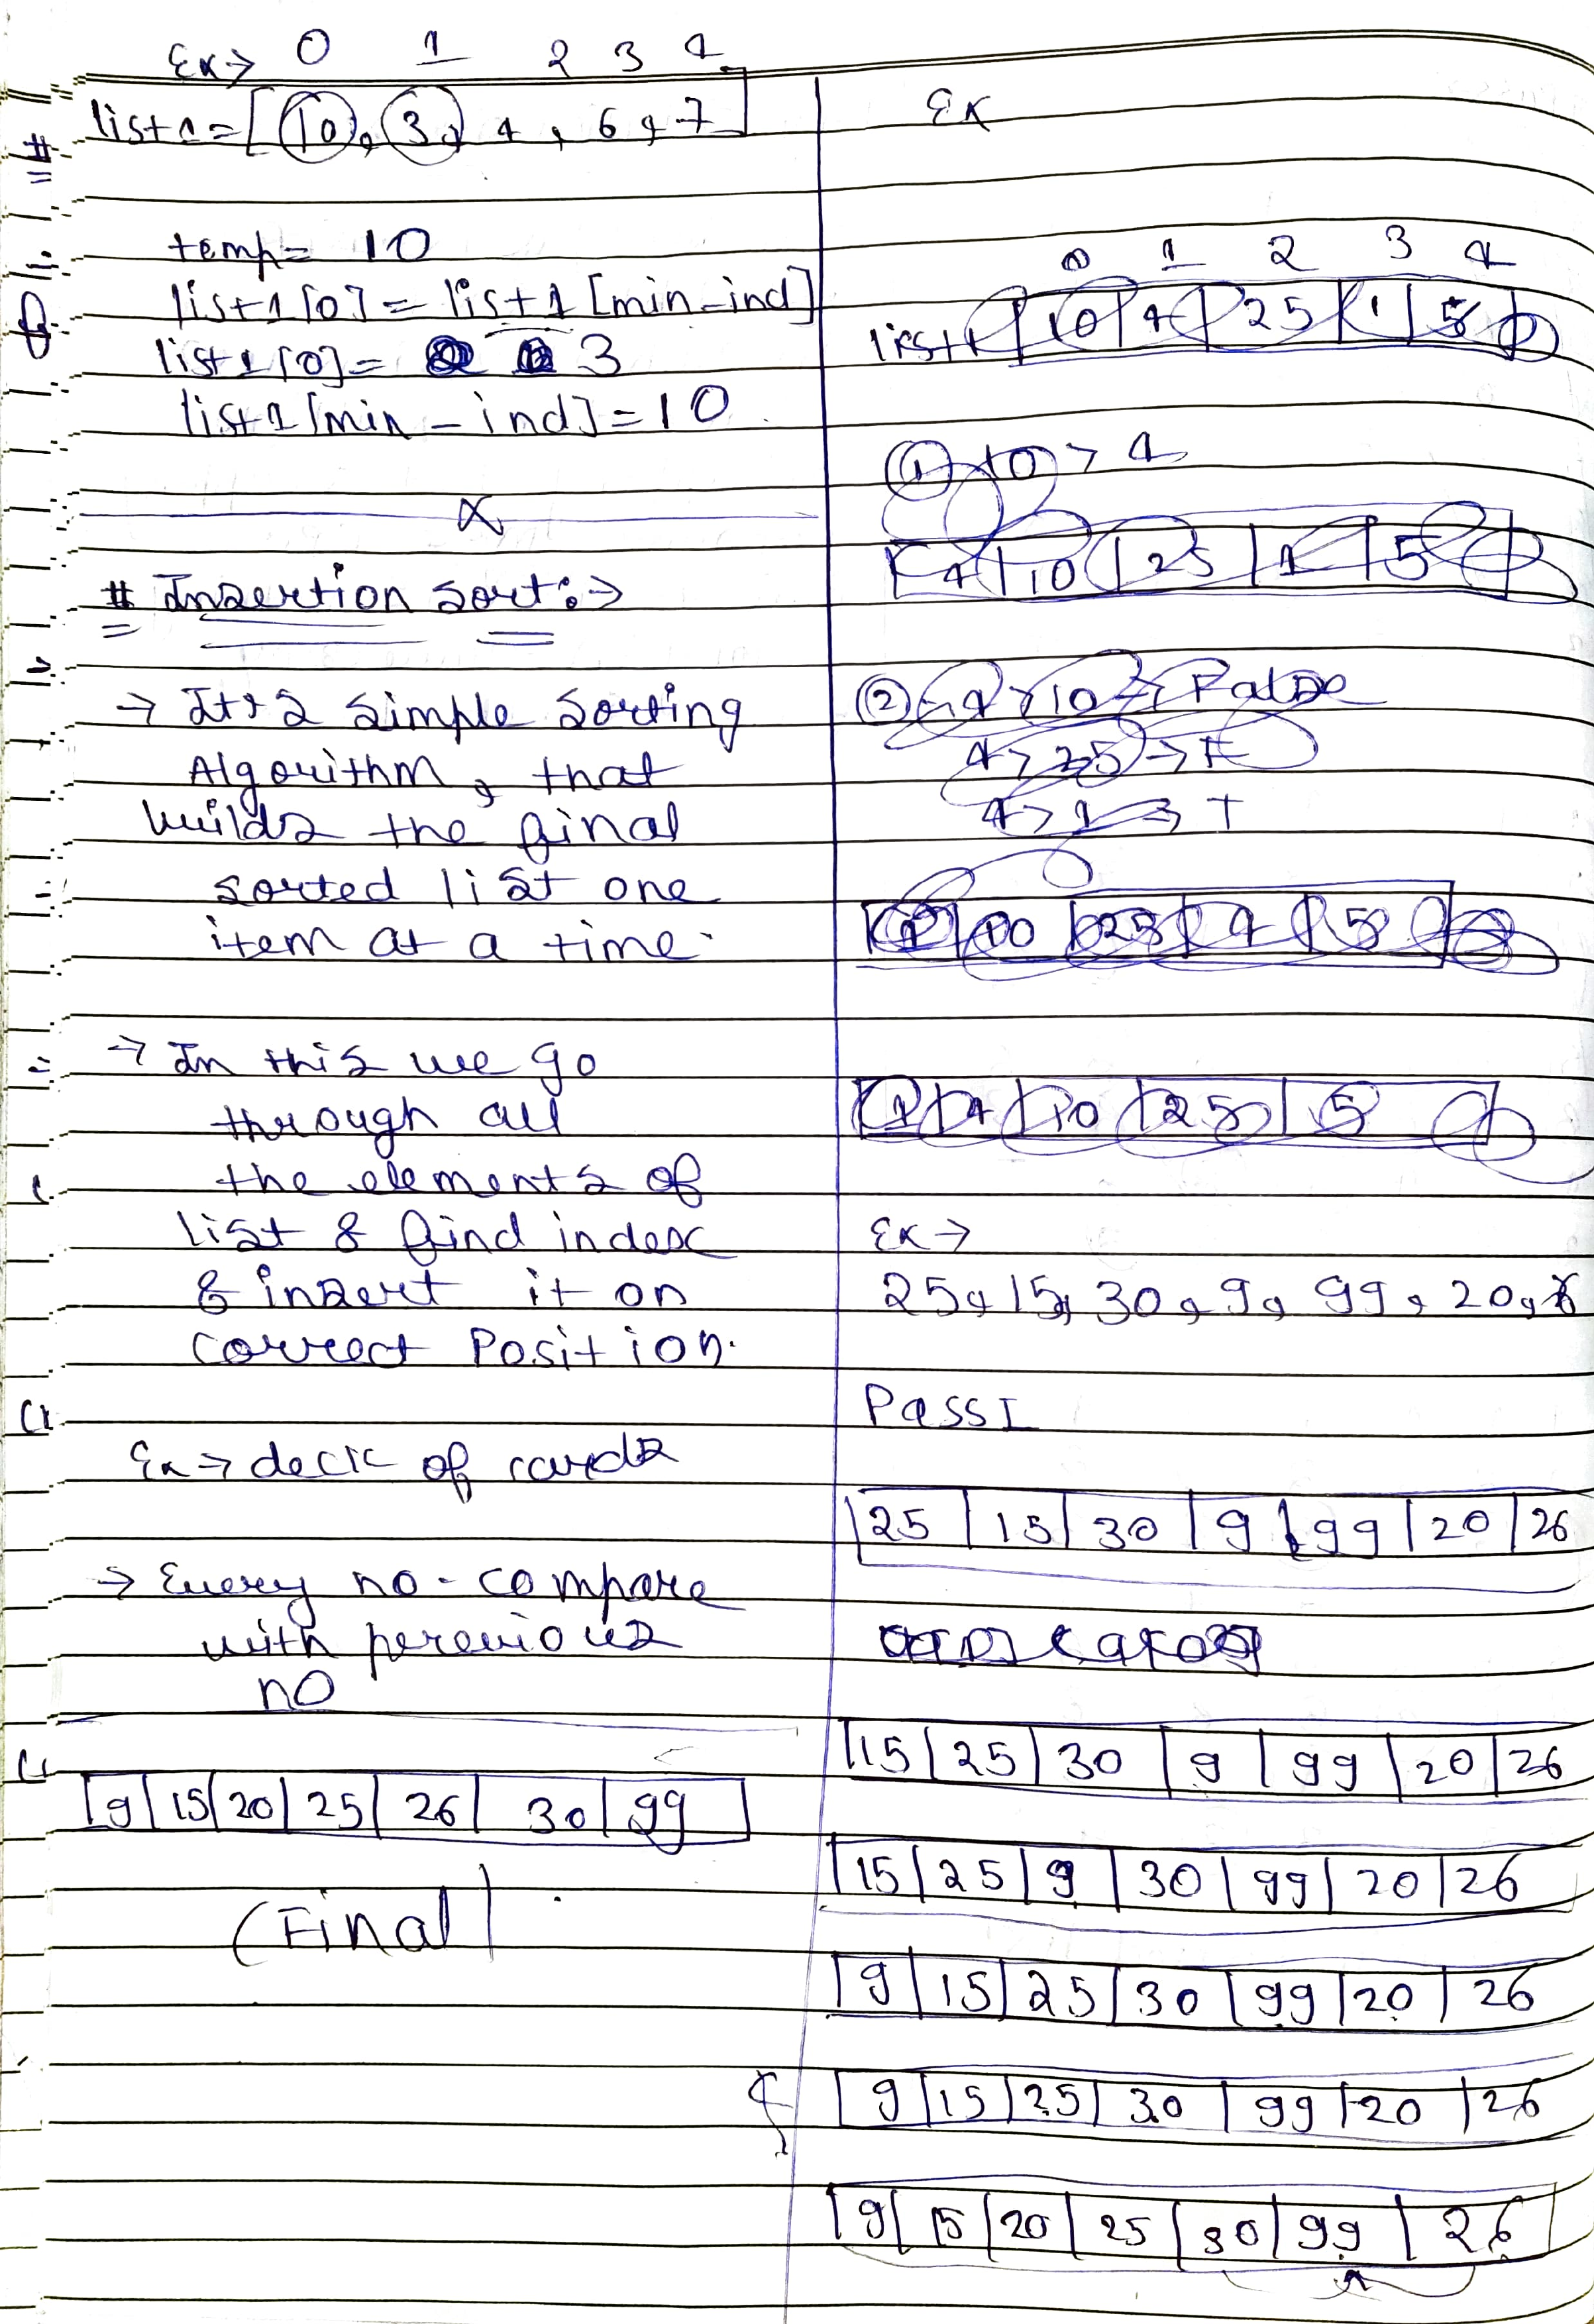 Ex→ 0 1 2 3 4
list1=[10, 3, 4, 6, 7]
temp= 10
list1[0]= list1[min-ind]
list1[0]= 3
list1[min-ind]=10
x
# Insertion Sort:→
→ It's a simple sorting
Algorithm, that
builds the final
sorted list one
item at a time.
→ In this we go
through all
the elements of
list & find index
& insert it on
correct Position.
Ex→ deck of cards
→ Every no. compare
with perevious
no
9|15|20|25|26|30|99
(Final)
Ex
0 1 2 3 4
list1 |10|4|25|1|5
① 10 > 4
4|10|25|1|5
② 4>10→False
4>25→F
4>1→T
1|10|25|4|5
1|4|10|25|5
Ex→
25, 15, 30, 9, 99, 20,
Pass I
25|15|30|9|99|20|26
15|25|30|9|99|20|26
15|25|9|30|99|20|26
9|15|25|30|99|20|26
9|15|25|30|99|20|26
9|15|20|25|30|99|26